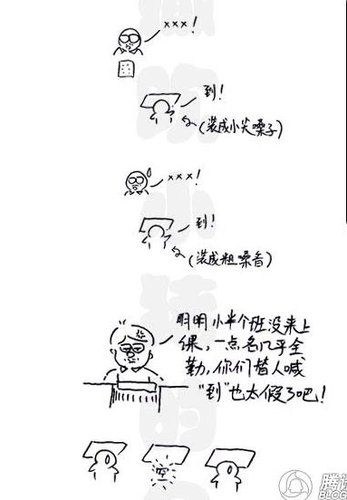 ×××!
到!
(装成小尖嗓子)
×××!
到!
(装成粗嗓音)
明明小半个班没来上
课,一点名几乎全
勤,你们替人喊
"到"也太假了吧!
腾讯
BLOG